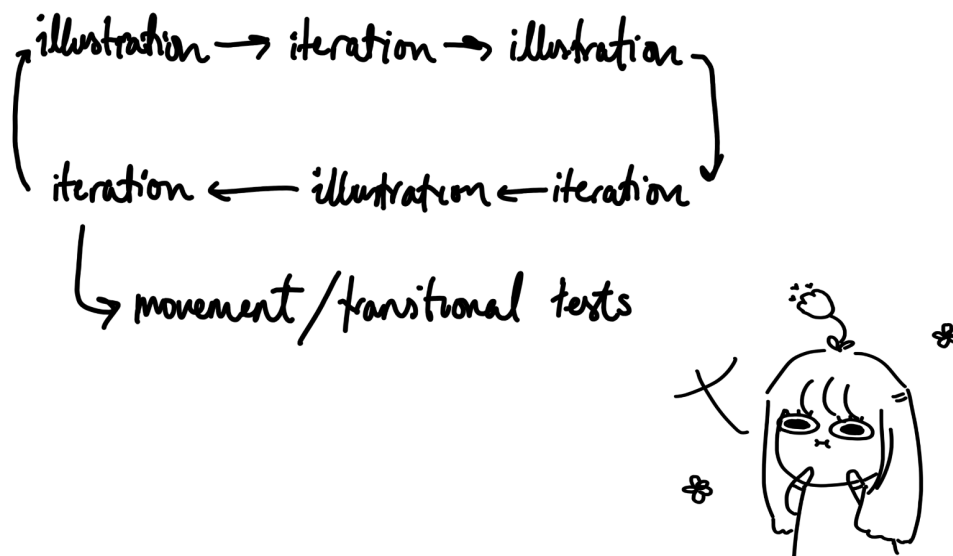 illustration → iteration → illustration
iteration ← illustration ← iteration
movement/transitional tests